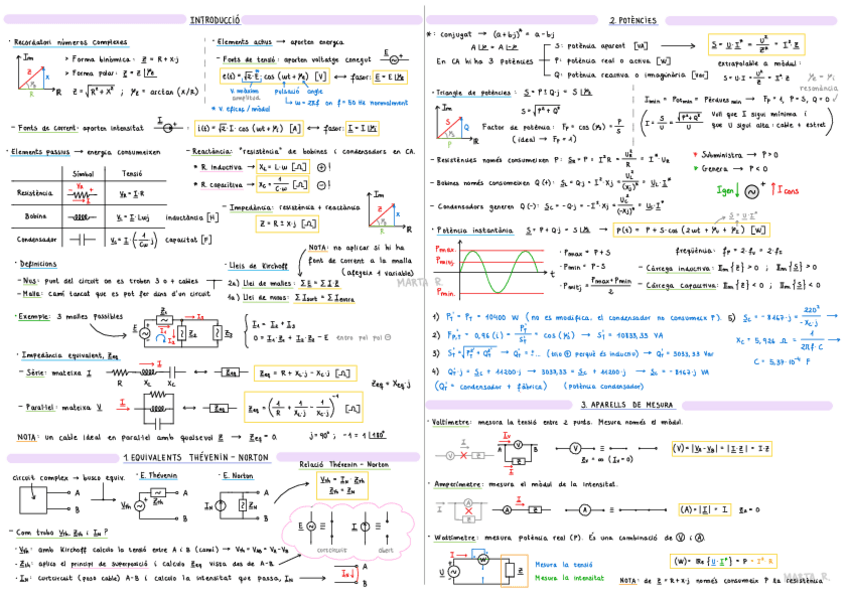 INTRODUCCIÓ
· Recordatori números complexes
Im
R
> Forma binòmica: Z = R + X·j
> Forma polar: Z = Z |φz
Z = √(R² + X²) ; φz = arctan (X/R)
· Elements actius → aporten energia
- Fonts de tensió: aporten voltatge conegut
e(t) = √2·E·cos (ωt + φE) [V] ↔ fasor: E = E |φE
V. màxim
amplitud
pulsació
angle
* V. eficaç / mòdul
ω = 2πf on f = 50 Hz normalment
- Fonts de corrent: aporten intensitat
i(t) = √2·I·cos (ωt + φI) [A] ↔ fasor: I = I |φI
· Elements passius → energia consumeixen
Símbol
Tensió
Resistència
VR = I·R
Bobina
VL = I·Lωj
inductància [H]
Condensador
capacitat [F]
- Reactància: "resistència" de bobines i condensadors en CA.
* R. inductiva → XL = L·ω [Ω]
* R. capacitiva → XC = 1/(C·ω) [Ω]
- Impedància: resistència + reactància
Z = R ± X·j [Ω]
· Definicions
- Nus: punt del circuit on es troben 3 o + cables
- Malla: camí tancat que es pot fer dins d'un circuit.
· Lleis de Kirchoff
2a) Llei de malles: ΣE = ΣI·Z
1a) Llei de nusos: ΣIsurt = ΣIentra
NOTA: no aplicar si hi ha
font de corrent a la malla
(afegeix 1 variable)
MARTA R.
· Exemple: 3 malles possibles
I1 = I2 + I3
0 = I1·Z1 + I2·Z2 - E
entra pel pol ⊖
· Impedància equivalent, Zeq
- Sèrie: mateixa I
R XL XC
Zeq
Zeq = R + XL·j - XC·j [Ω]
Zeq = Xeq·j
- Paral·lel: mateixa V
Zeq
Zeq = (1/R + 1/(XL·j) - 1/(XC·j))⁻¹ [Ω]
NOTA: un cable ideal en paral·lel amb qualsevol Z → Zeq = 0.
j = 90° ; -1 = 1 |180°
1. EQUIVALENTS THÉVENIN - NORTON
circuit complex → busco equiv.
· E. Thévenin
· E. Norton
Relació Thévenin - Norton
Vth = IN·Zth
Zth = ZN
curtcircuit
obert
- Com trobo Vth, Zth i IN?
· Vth: amb Kirchoff calculo la tensió entre A i B (camí) → Vth = VAB = VA - VB
· Zth: aplico el principi de superposició i calculo Zeq vista des de A-B
· IN: curtcircuit (poso cable) A-B i calculo la intensitat que passa, IN
2. POTÈNCIES
*: conjugat → (a+bj)* = a-bj
En CA hi ha 3 potències
S: potència aparent [VA]
P: potència real o activa [W]
Q: potència reactiva o imaginària [Var]
S = U·I* = U²/Z* = I²·Z
extrapolable a mòdul:
S = U·I = U²/Z = I²·Z
resonància
· Triangle de potències: S = P ± Q·j = S |φS
S = √(P² + Q²)
Factor de potència: FP = cos (φS) = P/S
(ideal → FP = 1)
Vull que I sigui mínima i
que U sigui alta: cable + estret
- Resistències només consumeixen P:
- Bobines només consumeixen Q (+):
- Condensadors generen Q (-):
* Subministra → P > 0
* Genera → P < 0
Igen
I cons
· Potència instantània
S = P + Q·j = S |φS → p(t) = P + S·cos (2ωt + φV + φI) [W]
Pmax.
Pmitj.
Pmin.
t
· Pmax = P + S
· Pmin = P - S
· Pmitj = (Pmax + Pmin)/2
freqüència: fP = 2·fV = 2·fI
- Càrrega inductiva: Im{Z} > 0 ; Im{S} > 0
- Càrrega capacitiva: Im{Z} < 0 ; Im{S} < 0
1) P1' = PT = 10400 W (no es modifica, el condensador no consumeix P).
2) FP,T' = 0,96 (i) = PT'/ST' = cos (φ1') → S1' = 10833,33 VA
3) S1' = √(P1'² + Q1'²) → Q1' = ?... (sie ⊕ perquè és inductiu) → Q1' = 3033,33 Var
4) Q1'·j = SC + 11200·j → 3033,33 = SC + 11200·j → SC = -8167·j VA
(Q1' = condensador + fàbrica)
(potència condensador)
5) SC = -8167·j = 220²/(-XC·j)
XC = 5,926 Ω = 1/(2πf·C)
C = 5,37·10⁻⁴ F
3. APARELLS DE MESURA
· Voltímetre: mesura la tensió entre 2 punts. Mesura només el mòdul.
(V) = |VA - VB| = |I·Z| = I·Z
· Amperímetre: mesura el mòdul de la intensitat.
(A) = |I| = I
ZA = 0
· Wattímetre: mesura potència real (P). És una combinació de V i A.
Mesura la tensió
Mesura la intensitat
(W) = Re{U·I*} = P = I²·R
NOTA: de Z = R + X·j només consumeix P la resistència
MARTA R.